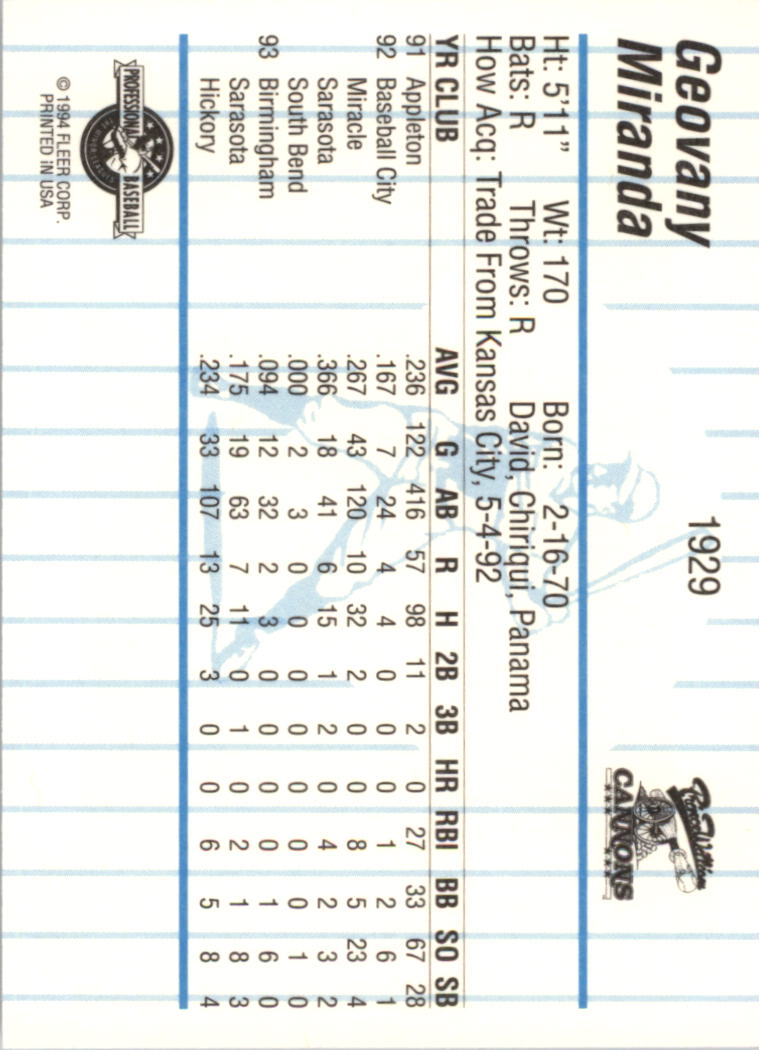 Geovany
Miranda
1929
Prince William
CANNONS
Ht: 5'11" Wt: 170 Born: 2-16-70
Bats: R Throws: R David, Chiriqui, Panama
How Acq: Trade From Kansas City, 5-4-92
YR CLUB AVG G AB R H 2B 3B HR RBI BB SO SB
91 Appleton .236 122 416 57 98 11 2 0 27 33 67 28
92 Baseball City .167 7 24 4 4 0 0 0 1 2 6 1
Miracle .267 43 120 10 32 2 0 0 8 5 23 4
Sarasota .366 18 41 6 15 1 2 0 4 2 3 2
South Bend .000 2 3 0 0 0 0 0 0 0 1 0
93 Birmingham .094 12 32 2 3 0 0 0 0 1 6 0
Sarasota .175 19 63 7 11 0 1 0 2 1 8 3
Hickory .234 33 107 13 25 3 0 0 6 5 8 4
PROFESSIONAL BASEBALL
© 1994 FLEER CORP.
PRINTED iN USA